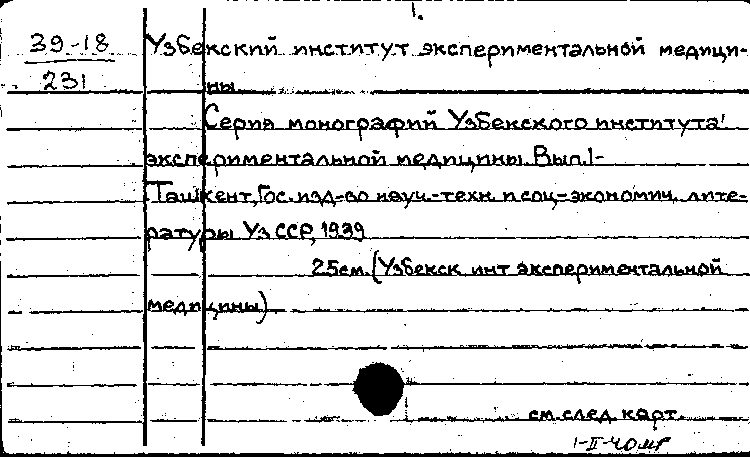 1.
39-18 Узбекский институт экспериментальной медици-
231 ны
Серия монографий Узбекского института
экспериментальной медицины. Вып.1-
Ташкент, Гос. изд-во науч.-техн. и соц-экономич. лите-
ратуры УзССР, 1939
25см. (Узбекск инт экспериментальной
медицины)
см. след. карт.
1-II-40